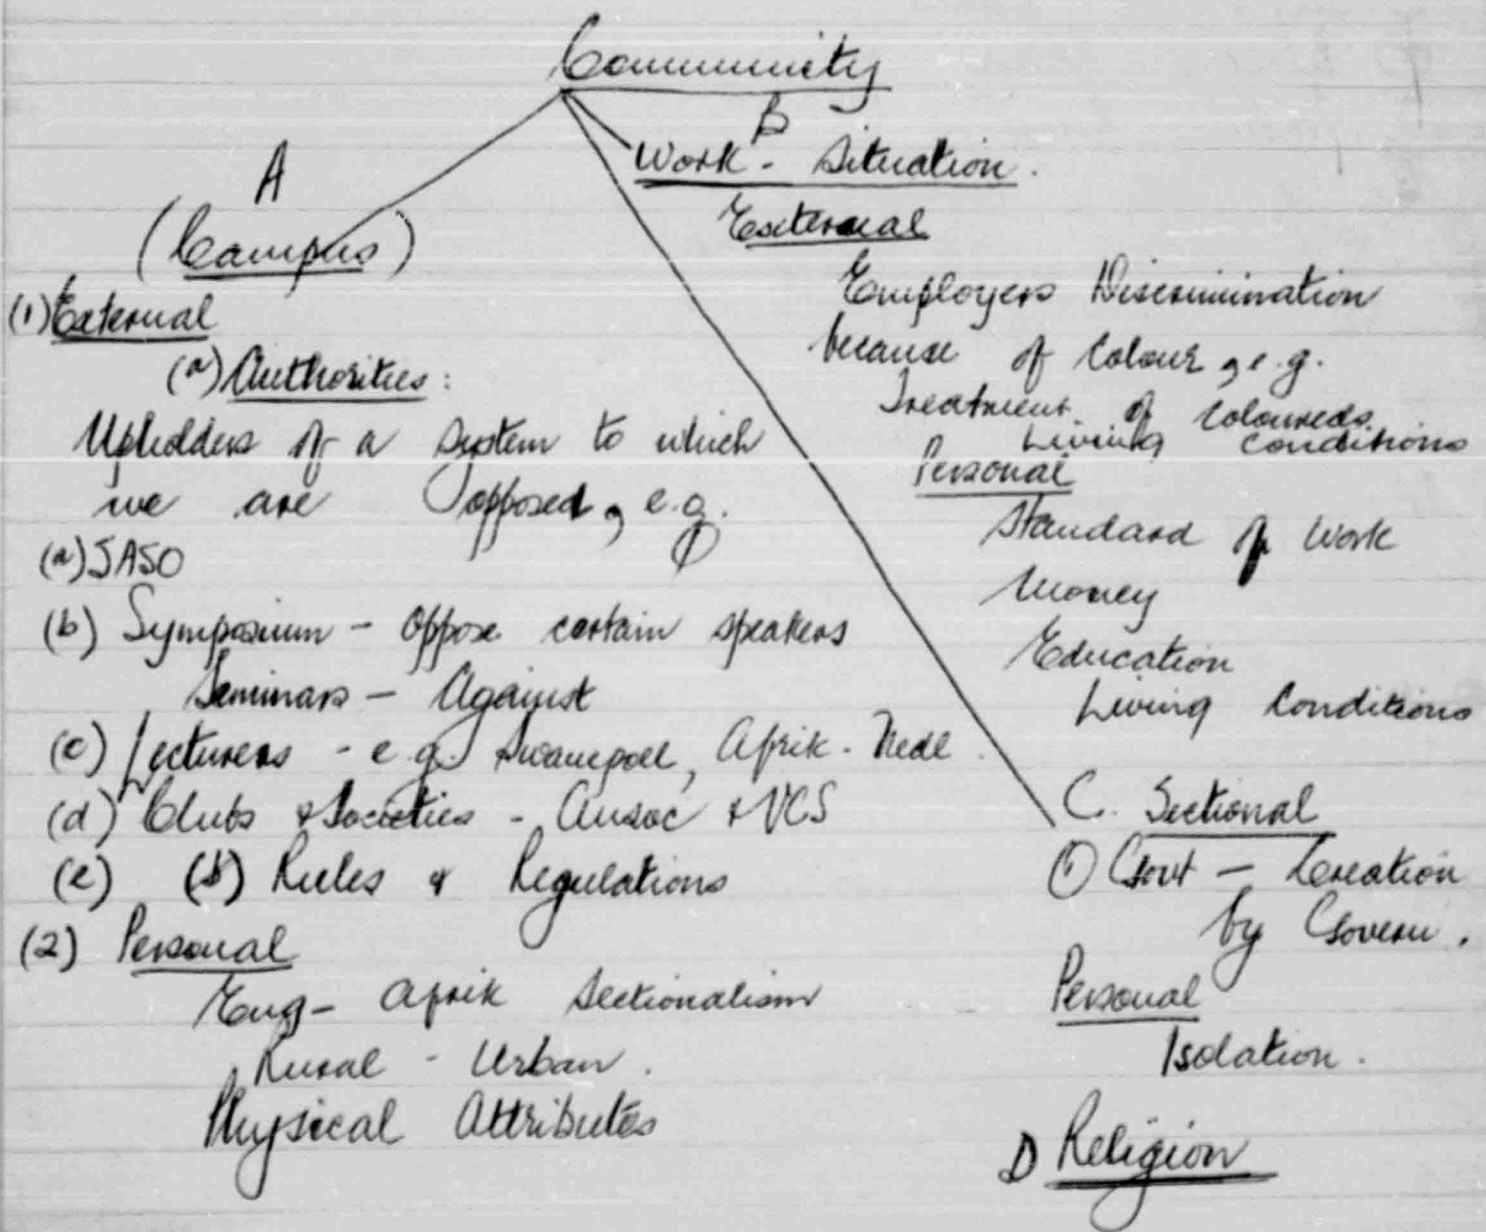 Community
A
(Campus)
(1) External
(a) Authorities:
Upholders of a system to which
we are opposed, e.g.
(a) SASO
(b) Symposium - Oppose certain speakers
Seminars - Against
(c) Lecturers - e.g. Swanepoel, Afrik. Nedl.
(d) Clubs & Societies - Ausoc & VCS
(e) (b) Rules & Regulations
(2) Personal
Eng - Afrik Sectionalism
Rural - Urban.
Physical Attributes
B
Work - Situation.
External
Employers Discrimination
because of Colour, e.g.
Treatment of Coloureds.
Living Conditions
Personal
Standard of Work
Money
Education
Living Conditions
C. Sectional
(1) Govt - Creation
by Govern.
Personal
Isolation.
D Religion